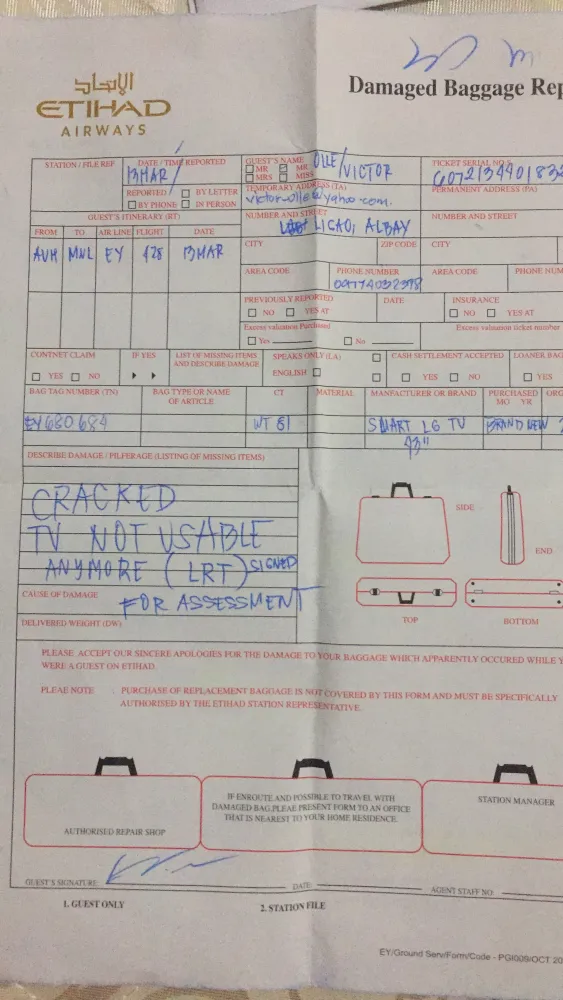 الإتحاد
ETIHAD
AIRWAYS
Damaged Baggage Rep
STATION / FILE REF.
DATE / TIME REPORTED
13MAR/
REPORTED BY LETTER
BY PHONE IN PERSON
GUEST'S NAME
MR MR
MRS MISS
OLLE/VICTOR
TICKET SERIAL NO.S
TEMPORARY ADDRESS (TA)
victor_olle@yahoo.com.
PERMANENT ADDRESS (PA)
GUEST'S ITINERARY (RT)
NUMBER AND STREET
LIGAO, ALBAY
NUMBER AND STREET
FROM TO AIR LINE FLIGHT DATE
AUH MNL EY 428 13MAR
CITY ZIP CODE CITY
AREA CODE PHONE NUMBER AREA CODE PHONE NUM
PREVIOUSLY REPORTED DATE INSURANCE
NO YES AT NO YES AT
Excess valuation Purchased Excess valuation ticket number
Yes No
CONTNET CLAIM IF YES LIST OF MISSING ITEMS
AND DESCRIBE DAMAGE
SPEAKS ONLY (LA) CASH SETTLEMENT ACCEPTED LOANER BAG
YES NO ENGLISH YES NO YES
BAG TAG NUMBER (TN) BAG TYPE OR NAME
OF ARTICLE
CT MATERIAL MANUFACTURER OR BRAND PURCHASED
MO YR
EY680684 WT 81 SMART LG TV BRAND NEW
43"
DESCRIBE DAMAGE / PILFERAGE (LISTING OF MISSING ITEMS)
CRACKED
TV NOT USABLE
ANYMORE (LRT) SIGNED
CAUSE OF DAMAGE FOR ASSESSMENT
DELIVERED WEIGHT (DW)
SIDE
END
TOP
BOTTOM
PLEASE ACCEPT OUR SINCERE APOLOGIES FOR THE DAMAGE TO YOUR BAGGAGE WHICH APPARENTLY OCCURED WHILE Y
WERE A GUEST ON ETIHAD.
PLEAE NOTE : PURCHASE OF REPLACEMENT BAGGAGE IS NOT COVERED BY THIS FORM AND MUST BE SPECIFICALLY
AUTHORISED BY THE ETIHAD STATION REPRESENTATIVE.
AUTHORISED REPAIR SHOP
IF ENROUTE AND POSSIBLE TO TRAVEL WITH
DAMAGED BAG,PLEAE PRESENT FORM TO AN OFFICE
THAT IS NEAREST TO YOUR HOME RESIDENCE.
STATION MANAGER
GUEST'S SIGNATURE: DATE: AGENT STAFF NO
1. GUEST ONLY 2. STATION FILE
EY/Ground Serv/Form/Code - PGI009/OCT 20